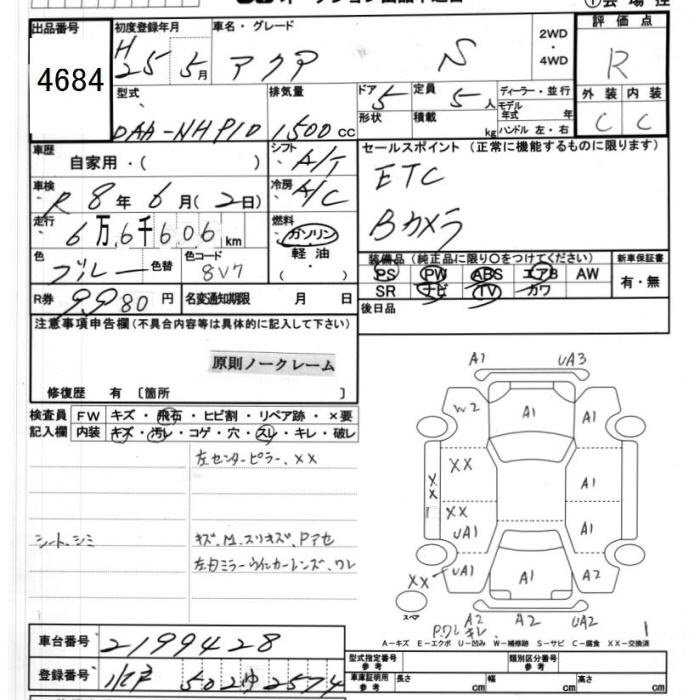 出品番号 4684
初度登録年月 H25年5月
車名・グレード アクア S
2WD・4WD
評価点 R
外装 C 内装 C
型式 DAA-NHP10
排気量 1500cc
ドア 5 形状
定員 5人 積載 kg
ディーラー・並行
モデル年式 年
ハンドル 左・右
車歴 自家用・( )
シフト A/T
車検 R8年6月(2日)
冷房 A/C
走行 6万6千606km
燃料 ガソリン 軽油 ( ・ )
色 ブルー 色替
色コード 8V7
R券 9980円
名変通知期限 月 日
セールスポイント(正常に機能するものに限ります)
ETC
Bカメラ
装備品(純正品に限り○をつけてください)
PS PW ABS エアB AW
SR ナビ TV カワ
新車保証書 有・無
後日品
注意事項申告欄(不具合内容等は具体的に記入して下さい)
原則ノークレーム
修復歴 有 〔箇所 〕
検査員記入欄
FW キズ・飛石・ヒビ割・リペア跡・×要
内装 キズ・汚レ・コゲ・穴・スレ・キレ・破レ
左センターピラー、XX
シート、シミ
キズ、M、スリキズ、Pアセ
左右ミラーウインカーレンズ、ワレ
A1 UA3
W2 A1 A1
XX A1
XX
XX
UA1 A1
UA1 A1 A2
XX
スペア
A2 A2 UA2
P.ワレ キレ
1
A－キズ E－エクボ U－凹み W－補修跡 S－サビ C－腐食 XX－交換済
車台番号 2199428
登録番号 水戸 502 ゆ 2574
型式指定番号 参考
類別区分番号 参考
車庫証明用 参考 長さ cm 幅 cm 高さ cm